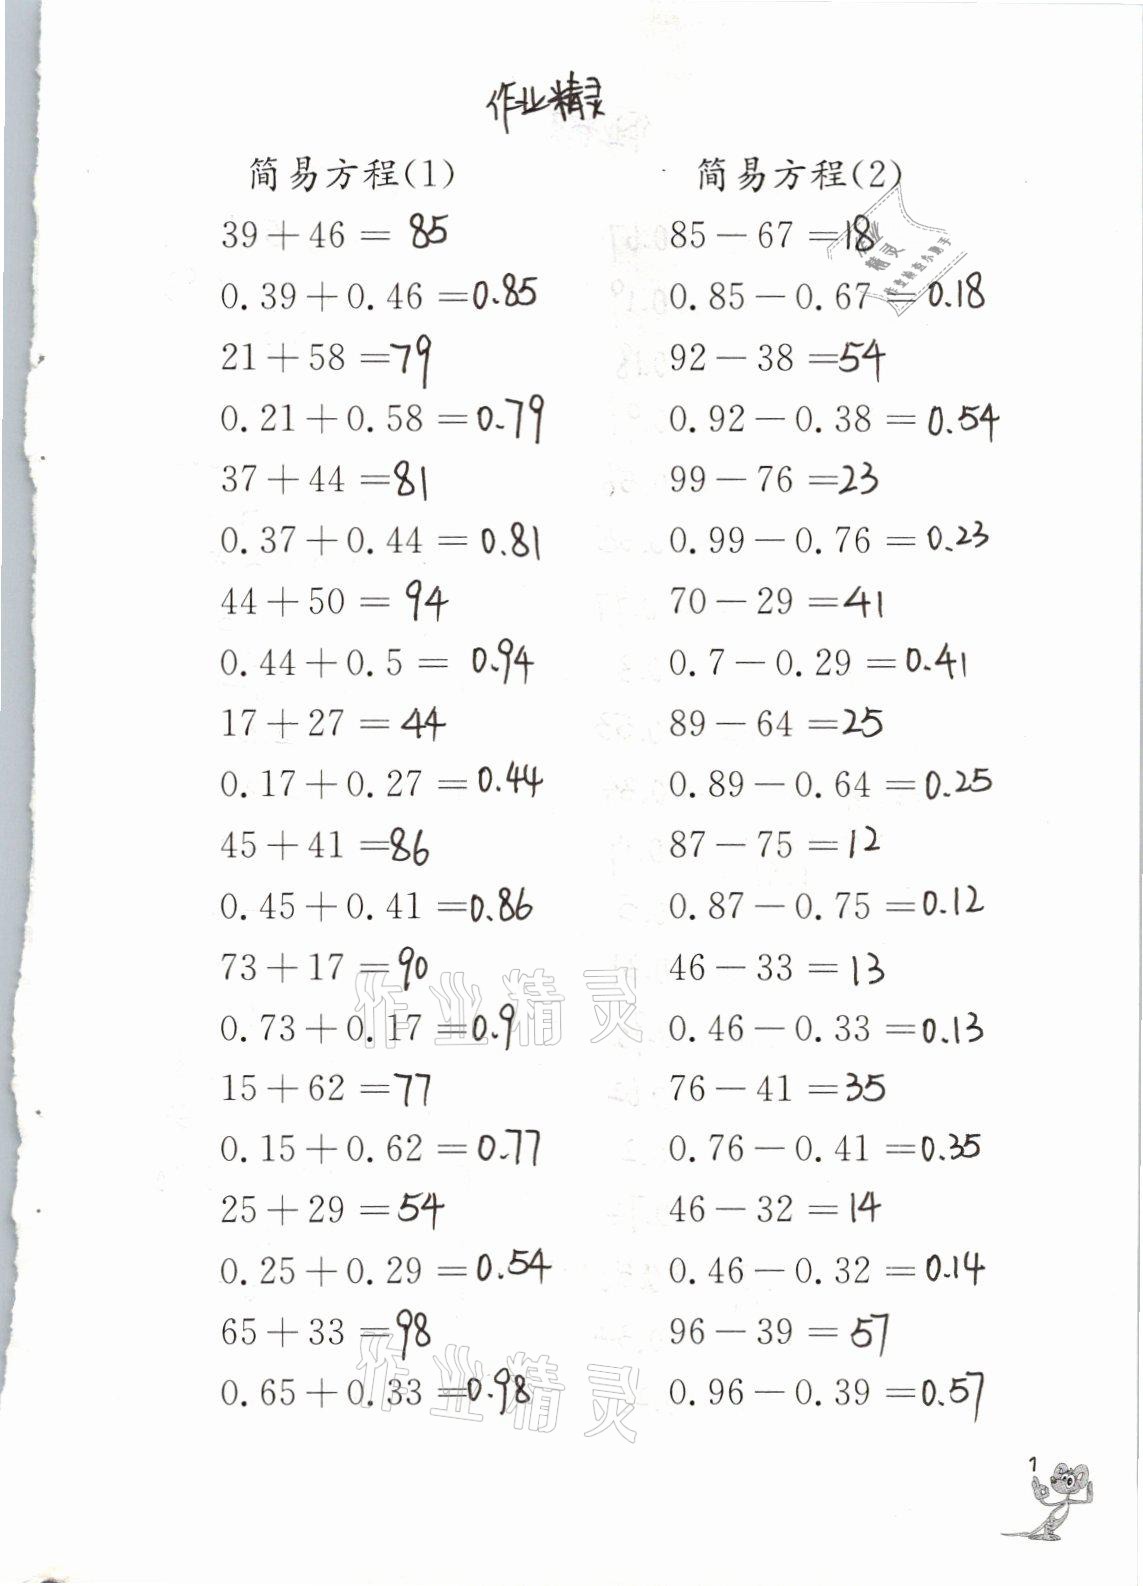 作业精灵
简易方程(1)
39+46=85
0.39+0.46=0.85
21+58=79
0.21+0.58=0.79
37+44=81
0.37+0.44=0.81
44+50=94
0.44+0.5=0.94
17+27=44
0.17+0.27=0.44
45+41=86
0.45+0.41=0.86
73+17=90
0.73+0.17=0.9
15+62=77
0.15+0.62=0.77
25+29=54
0.25+0.29=0.54
65+33=98
0.65+0.33=0.98
简易方程(2)
85-67=18
0.85-0.67=0.18
92-38=54
0.92-0.38=0.54
99-76=23
0.99-0.76=0.23
70-29=41
0.7-0.29=0.41
89-64=25
0.89-0.64=0.25
87-75=12
0.87-0.75=0.12
46-33=13
0.46-0.33=0.13
76-41=35
0.76-0.41=0.35
46-32=14
0.46-0.32=0.14
96-39=57
0.96-0.39=0.57
作业
精灵
作业检查小助手
作业精灵
作业精灵
1